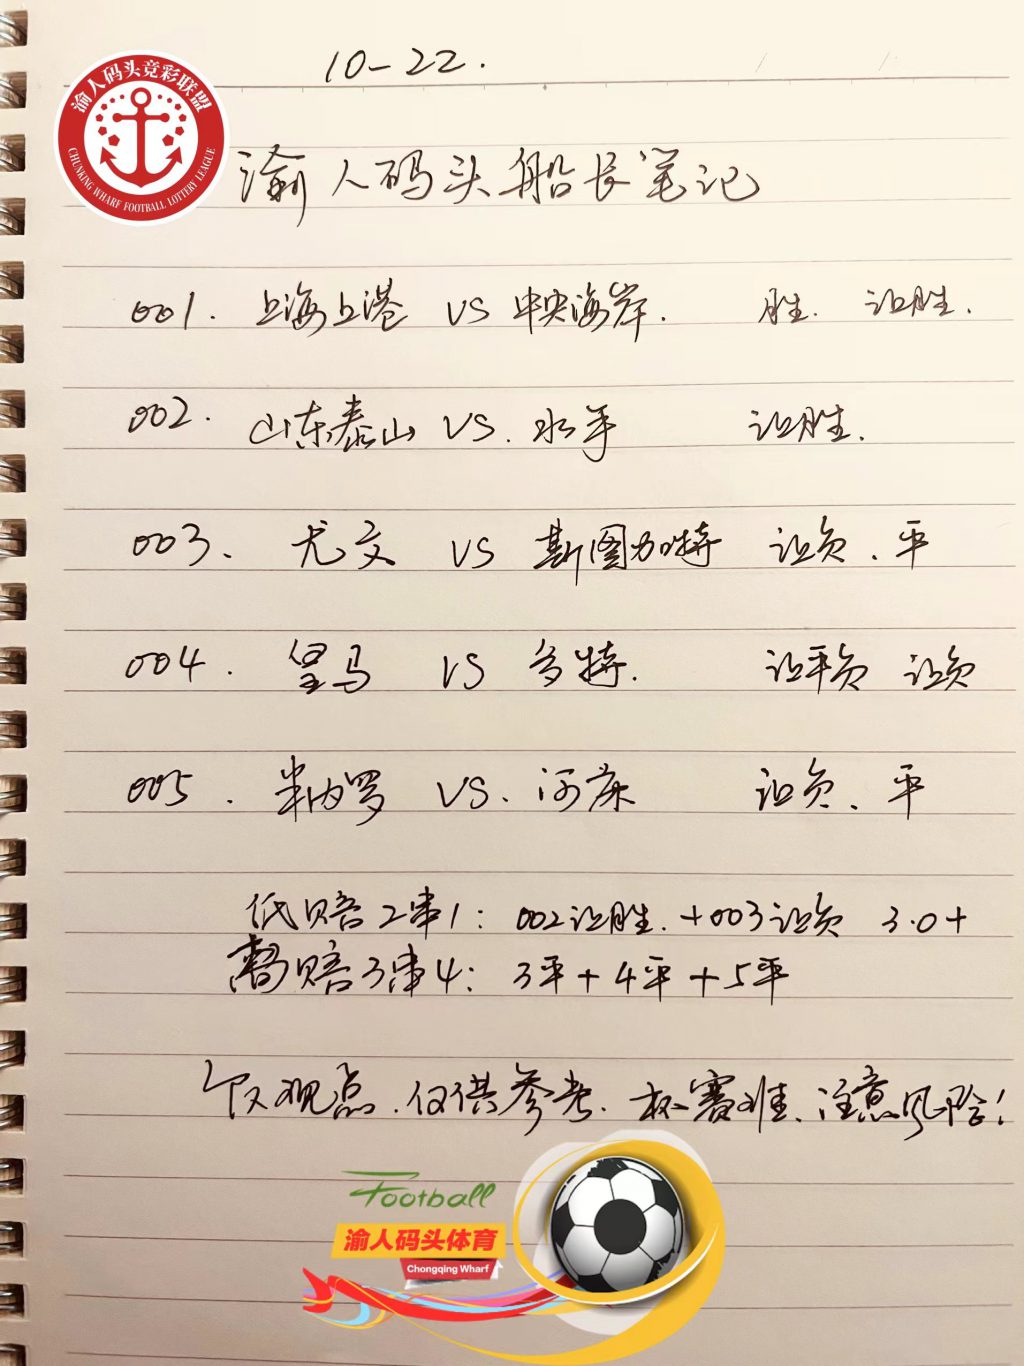 10-22.
渝人码头竞彩联盟
CHUNKING WHARF FOOTBALL LOTTERY LEAGUE
渝人码头船长笔记
001. 上海上港 VS 中央海岸. 胜. 让胜.
002. 山东泰山 VS. 水手 让胜.
003. 尤文 VS 斯图加特 让负、平
004. 皇马 VS 多特. 让平负 让负
005. 米内罗 VS. 河床 让负、平
低赔2串1: 002让胜.+003让负 3.0+
高赔3串4: 3平+4平+5平
观点.仅供参考.杯赛难、注意风险!
Football
渝人码头体育
Chongqing Wharf